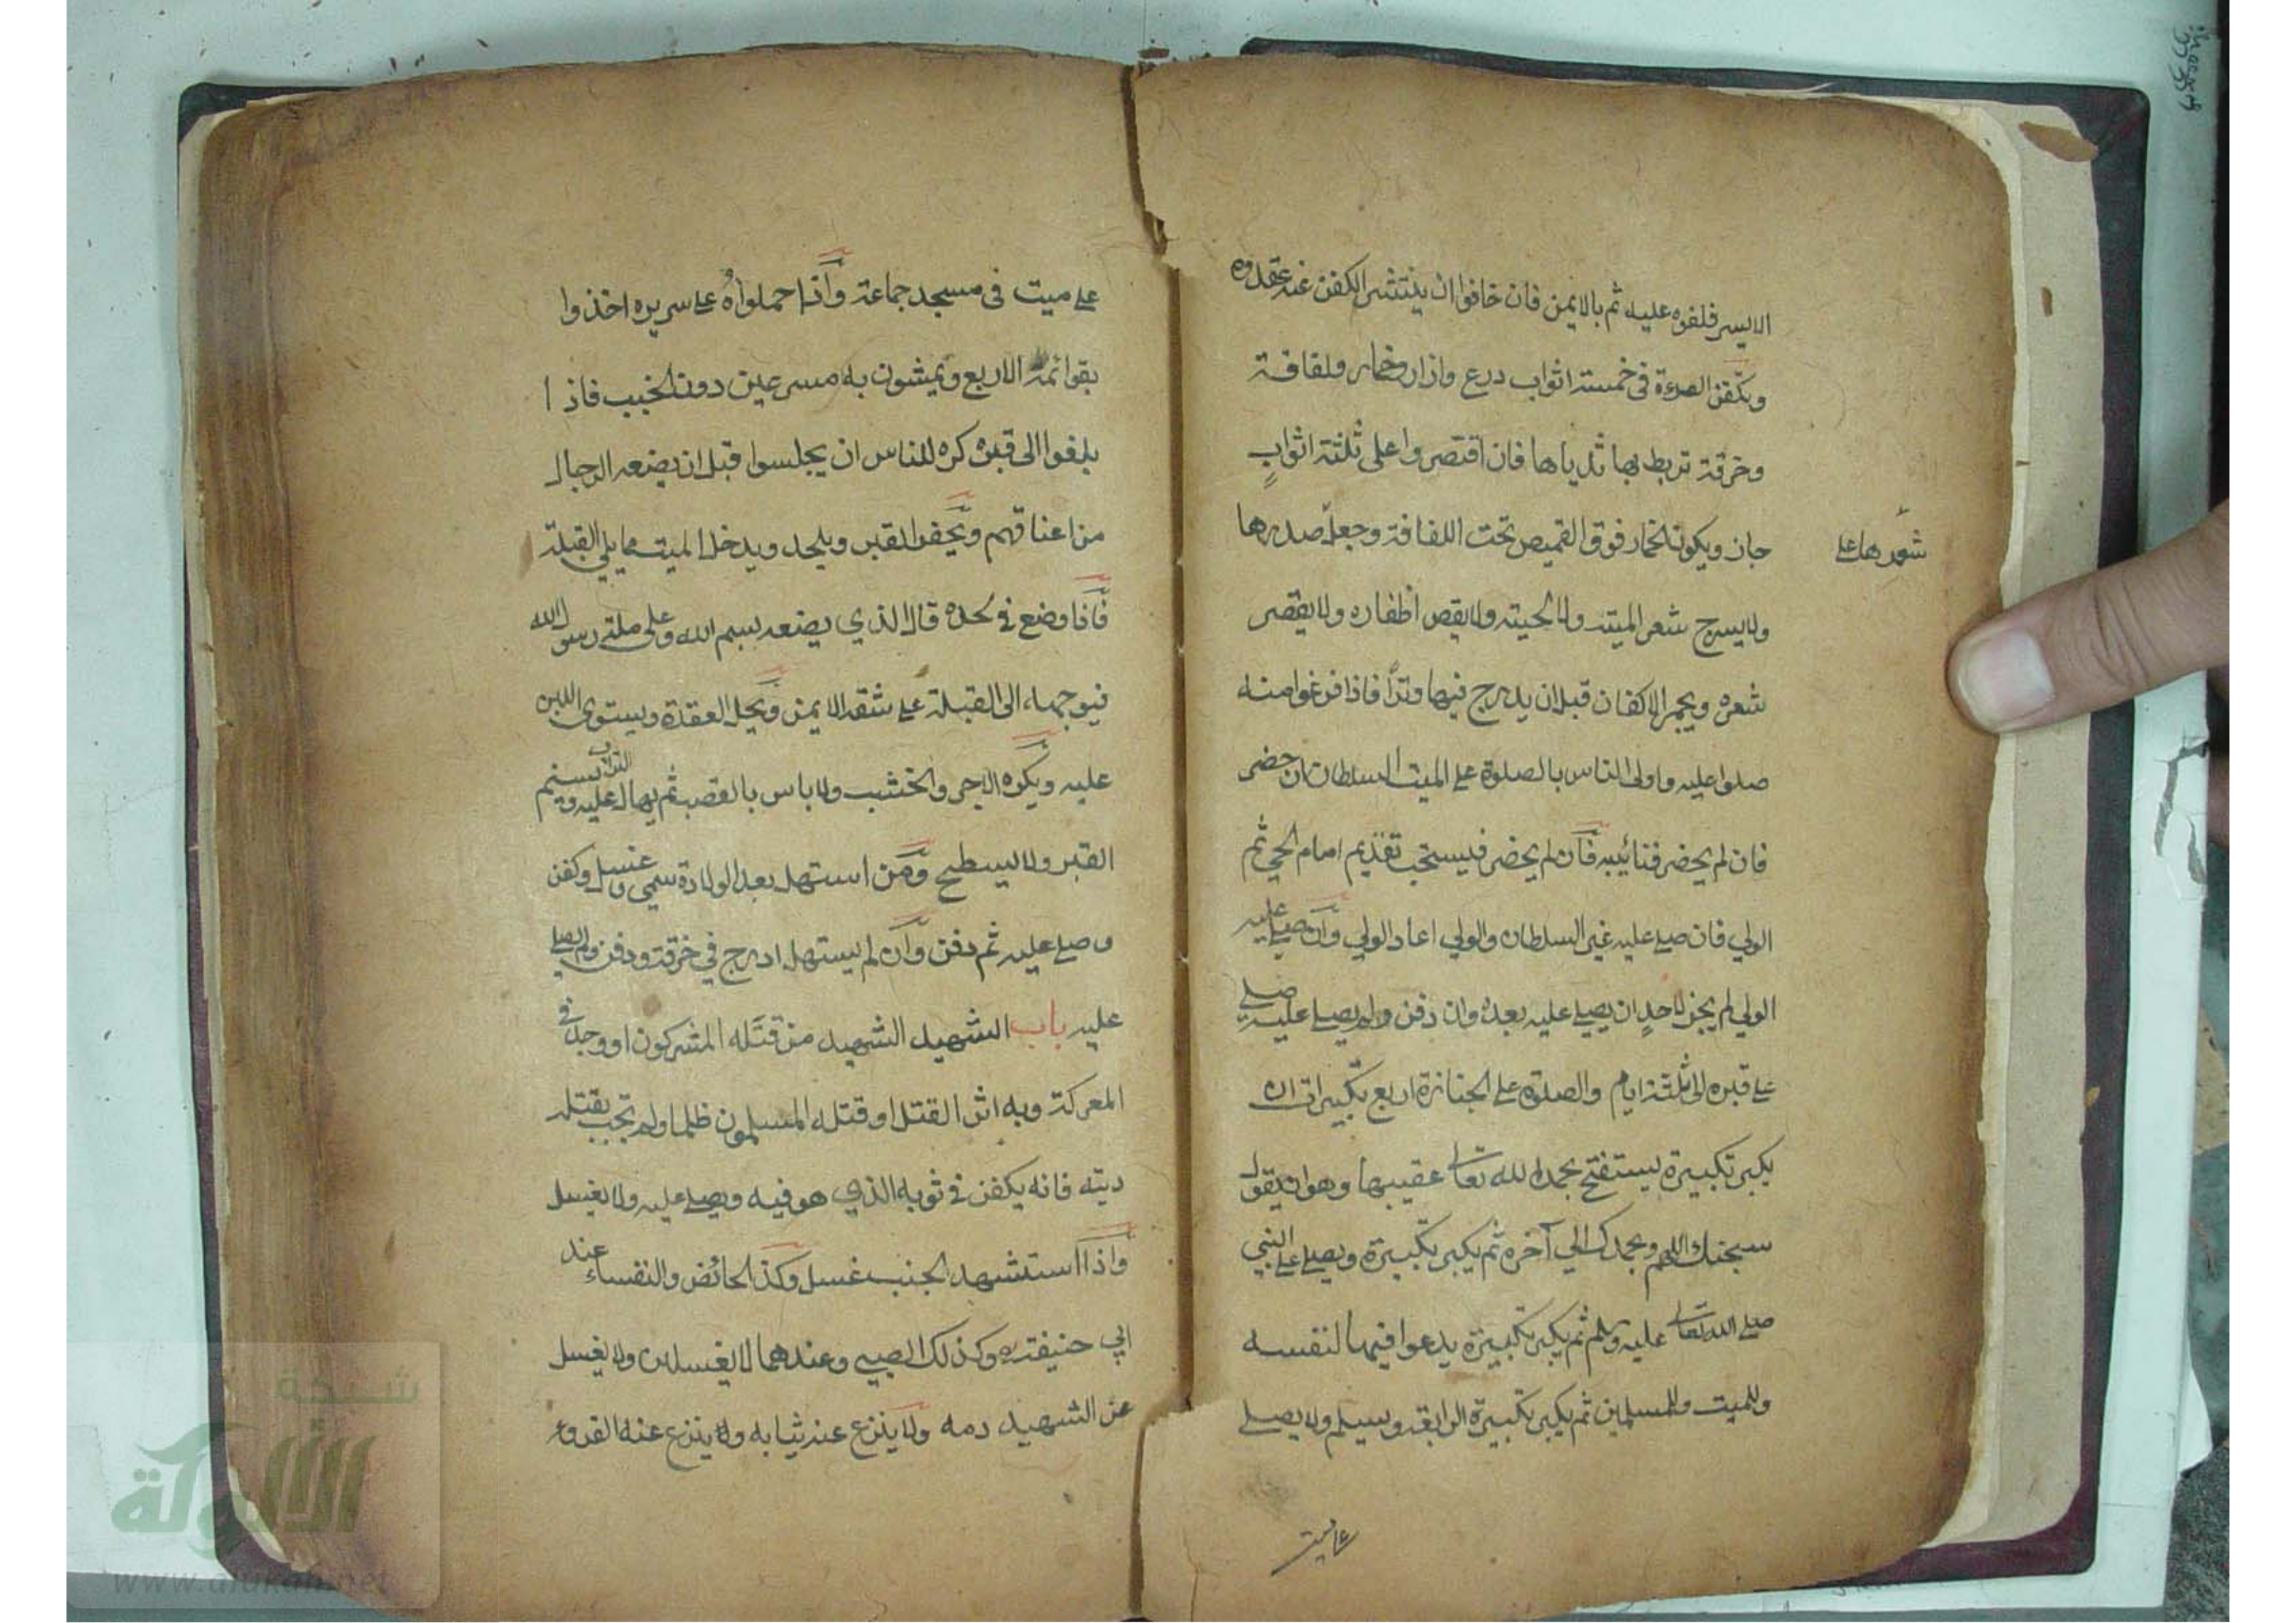 الايسر فلفوه عليه ثم بالايمن فان خافوا ان ينتشر الكفن عنه عقدوه
وتكفن المرءة في خمسة اثواب درع وازار وخمار ولفافة
وخرقة تربط بها ثدياها فان اقتصروا على ثلثة اثواب
جاز ويكون الخمار فوق القميص تحت اللفافة وجعل صدرها
شعرها على
ولا يسرح شعر الميت ولا لحيته ولا يقص اظفاره ولا يقصر
شعره ويجمر الاكفان قبل ان يدرج فيها وترا فاذا فرغوا منه
صلوا عليه واولى الناس بالصلوة على الميت السلطان ان حضر
فان لم يحضر فنائبه فان لم يحضر فيستحب تقديم امام الحي ثم
الولي فان صلى عليه غير السلطان والولي اعاد الولي وان صلى عليه
الولي لم يجز لاحد ان يصلي عليه بعده وان دفن ولم يصلى عليه صلى
على قبره الى ثلثة ايام والصلوة على الجنازة اربع تكبيرات ان
يكبر تكبيرة يستفتح بحمد الله تعالى عقيبها وهو ان يقول
سبحنك اللهم وبحمدك الي آخره ثم يكبر تكبيرة ويصلي على النبي
صلى الله تعالى عليه وسلم ثم يكبر تكبيرة يدعوا فيها لنفسه
وللميت وللمسلمين ثم يكبر تكبيرة الرابعة ويسلم ولا يصلى
على ميت
على ميت في مسجد جماعة واذا حملواه على سريره اخذوا
بقوائمه الاربع ويمشون به مسرعين دون الخبب فاذا
بلغوا الى قبره كره للناس ان يجلسوا قبل ان يضعه الرجال
من اعناقهم ويحفر القبر ويلحد ويدخل الميت مما يلي القبلة
فاذا وضع في لحده قال الذي يضعه بسم الله وعلى ملة رسول الله
فيوجهه الى القبلة على شقه الايمن ويحل العقدة ويستوى اللبن
عليه ويكره الاجر والخشب ولا باس بالقصب ثم يهال التراب عليه ويسنم
القبر ولا يسطح ومن استهل بعد الولادة سمى وغسل وكفن
وصلى عليه ثم دفن وان لم يستهل ادرج في خرقة ودفن ولم يصلى
عليه باب الشهيد الشهيد من قتله المشركون او وجد في
المعركة وبه اثر القتل او قتله المسلمون ظلما ولم تجب بقتله
ديته فانه يكفن في ثوبه الذي هو فيه ويصلى عليه ولا يغسل
واذا استشهد الجنب غسل وكذا الحائض والنفساء عند
ابي حنيفة وكذلك الصبي وعندهما لا يغسلان ولا يغسل
عن الشهيد دمه ولا ينزع عنه ثيابه ولا ينزع عنه الفرو
شبكة
الألوكة
www.alukah.net